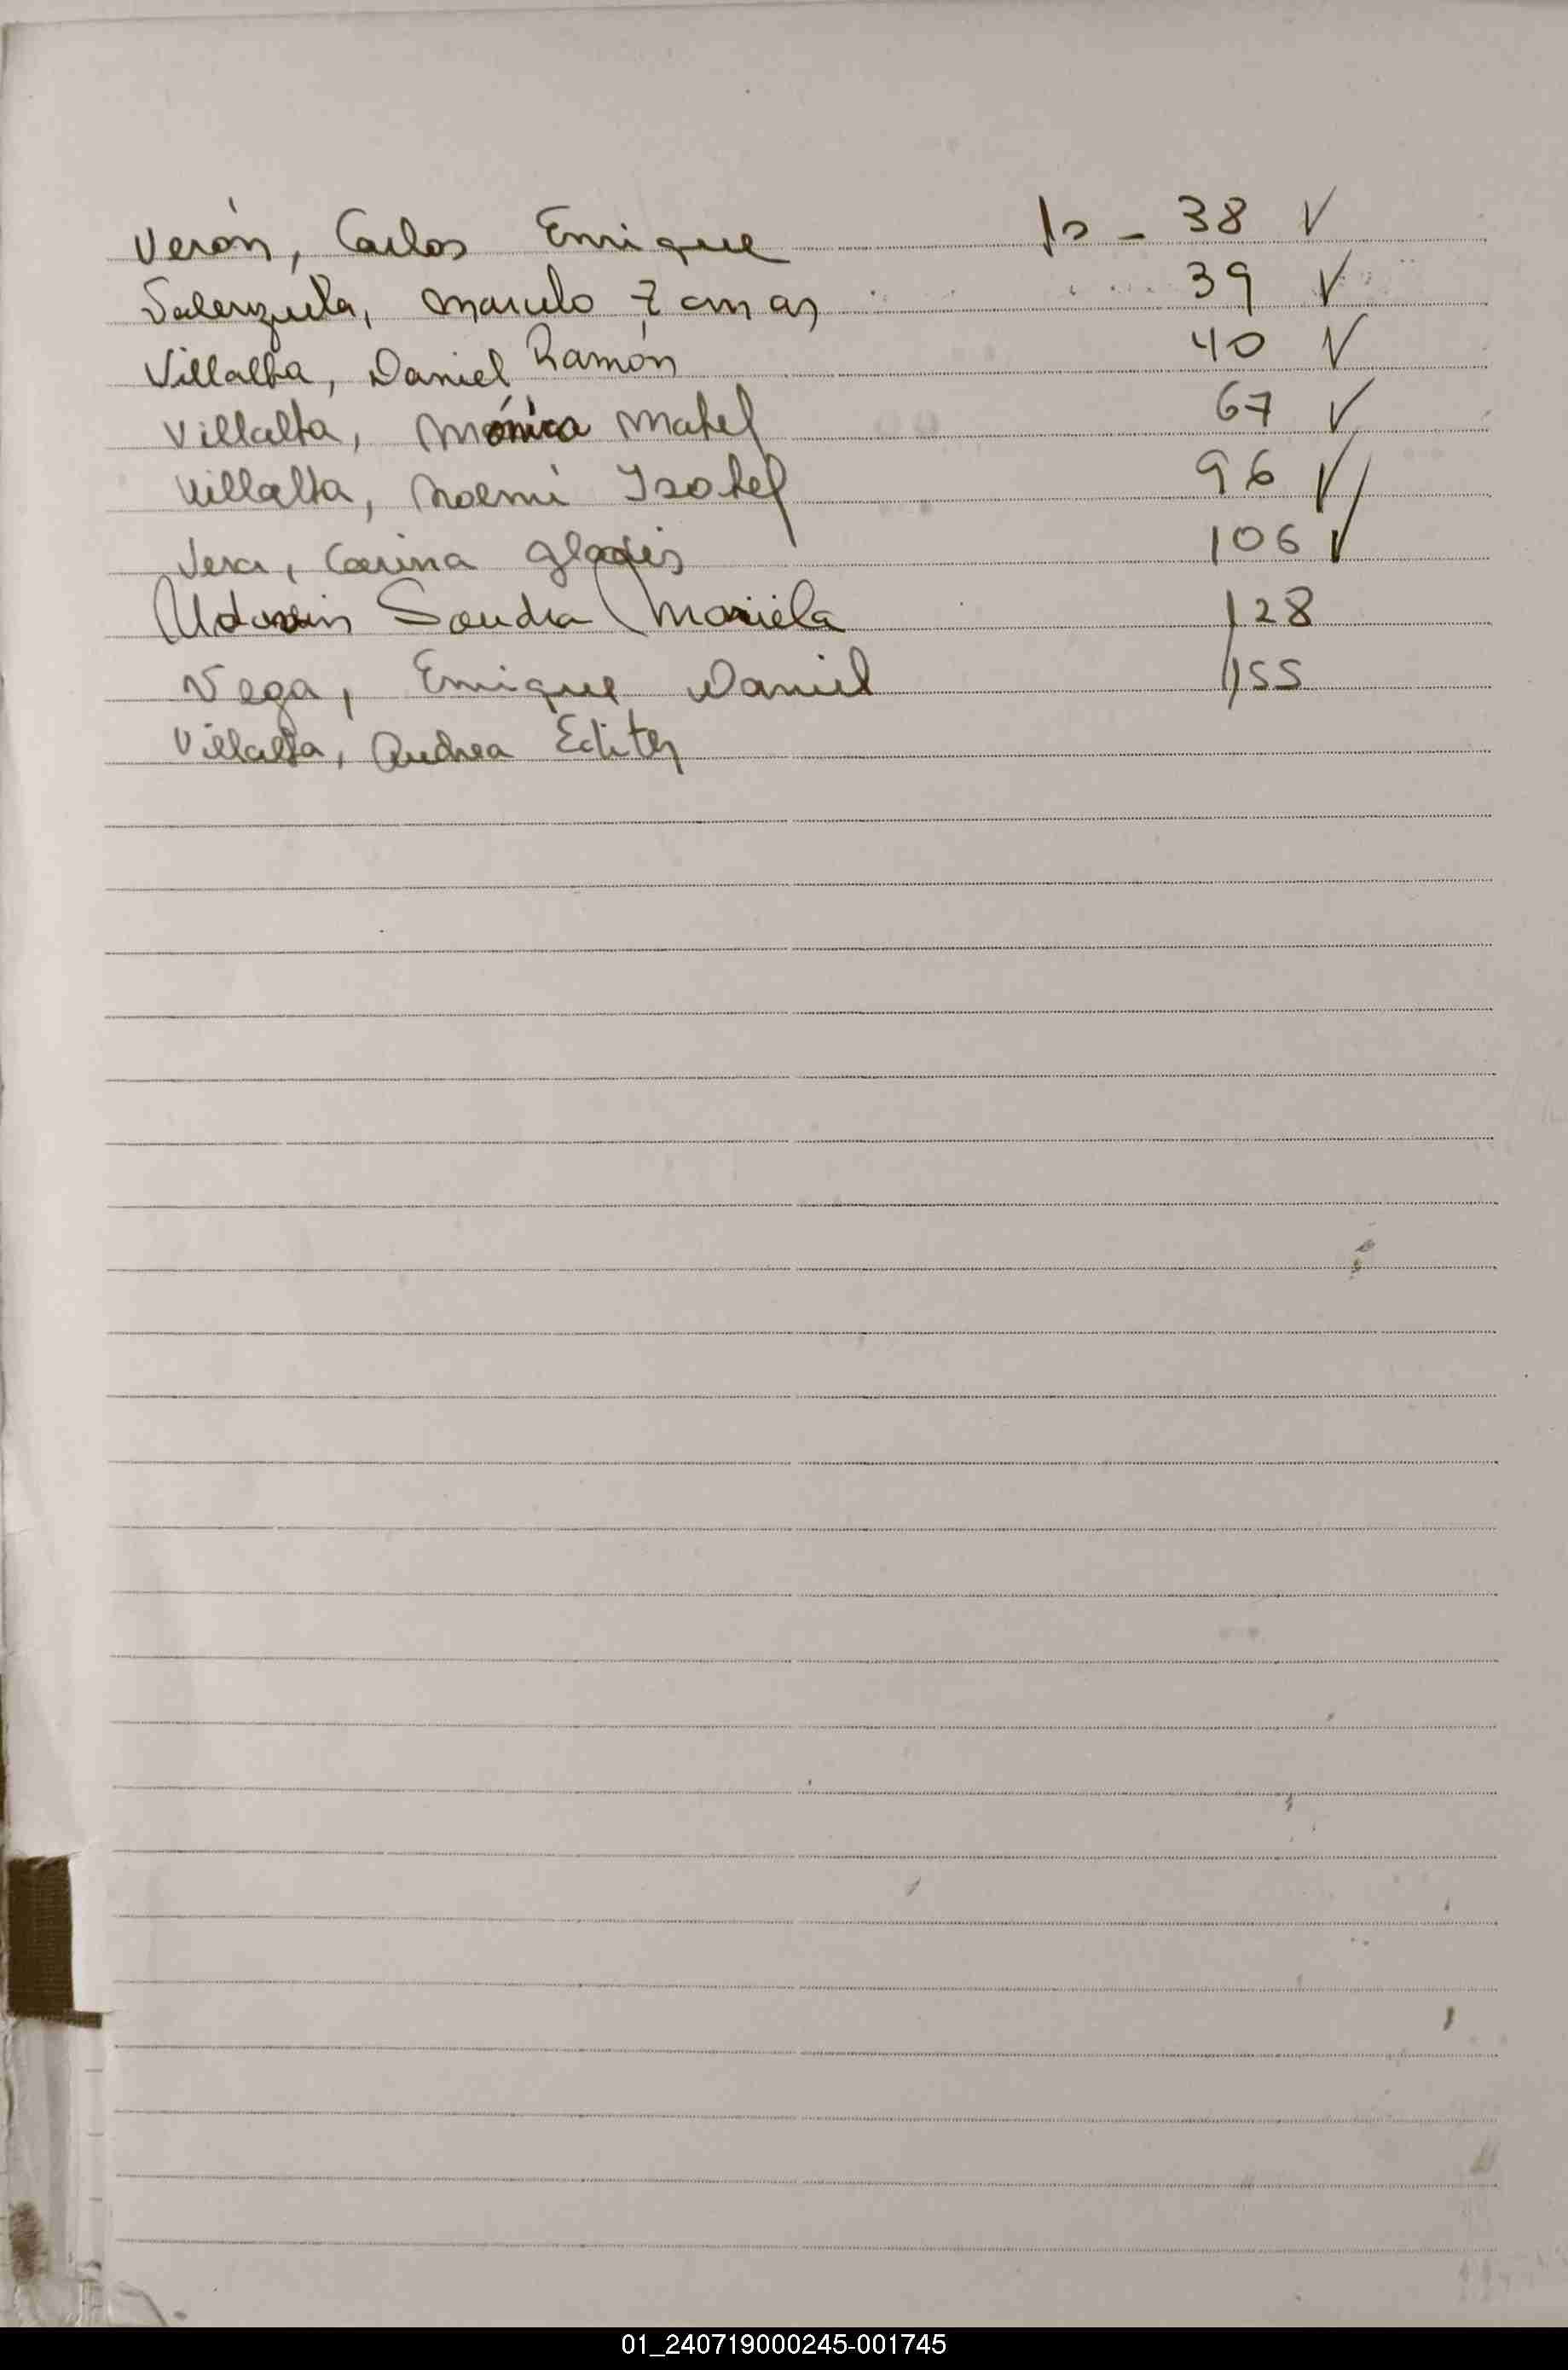 Verón, Carlos Enrique fs - 38 ✓
Valenzuela, Marcelo Tomas 39 ✓
Villalba, Daniel Ramón 40 ✓
Villalba, Mónica Mabel 67 ✓
Villalba, Noemi Isabel 96 ✓
Vera, Carina Gladis 106 ✓
Sandra Mariela 128
Vega, Enrique Daniel 155
Villalba, Andrea Edith
01_240719000245-001745